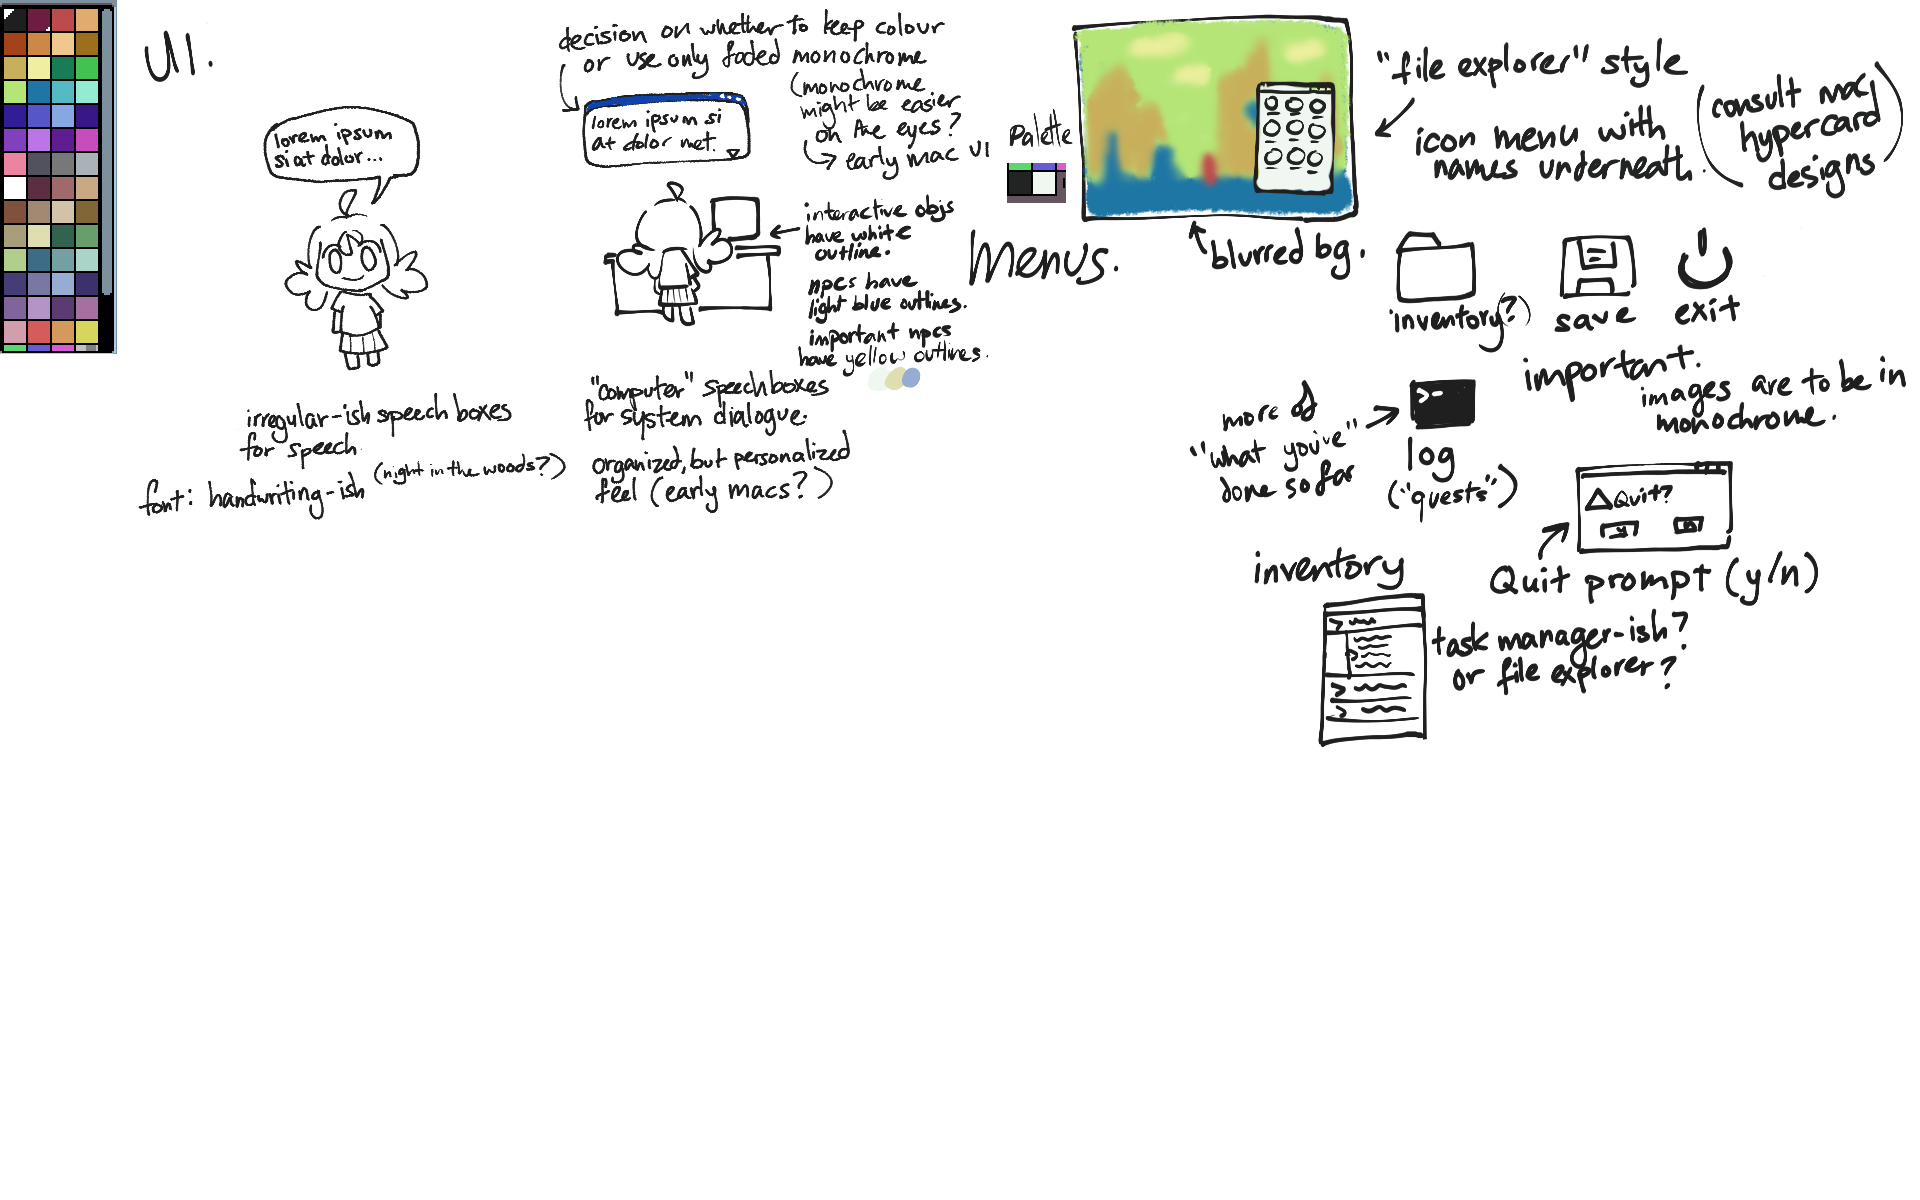 UI.
lorem ipsum
si at dolor...
irregular-ish speech boxes
for speech.
font: handwriting-ish (night in the woods?)
decision on whether to keep colour
or use only faded monochrome
(monochrome
might be easier
on the eyes?
early mac UI
lorem ipsum si
at dolor net.
interactive objs
have white
outline.
npcs have
light blue outlines.
important npcs
have yellow outlines.
"computer" speechboxes
for system dialogue.
organized, but personalized
feel (early macs?)
Menus.
Palette
blurred bg.
"file explorer" style
icon menu with
names underneath.
(consult mac
hypercard
designs)
inventory(?)
save
exit
important.
images are to be in
monochrome.
more of
"what you've"
done so far
>-
log
("quests")
Quit?
y
n
Quit prompt (y/n)
inventory
task manager-ish?
or file explorer?